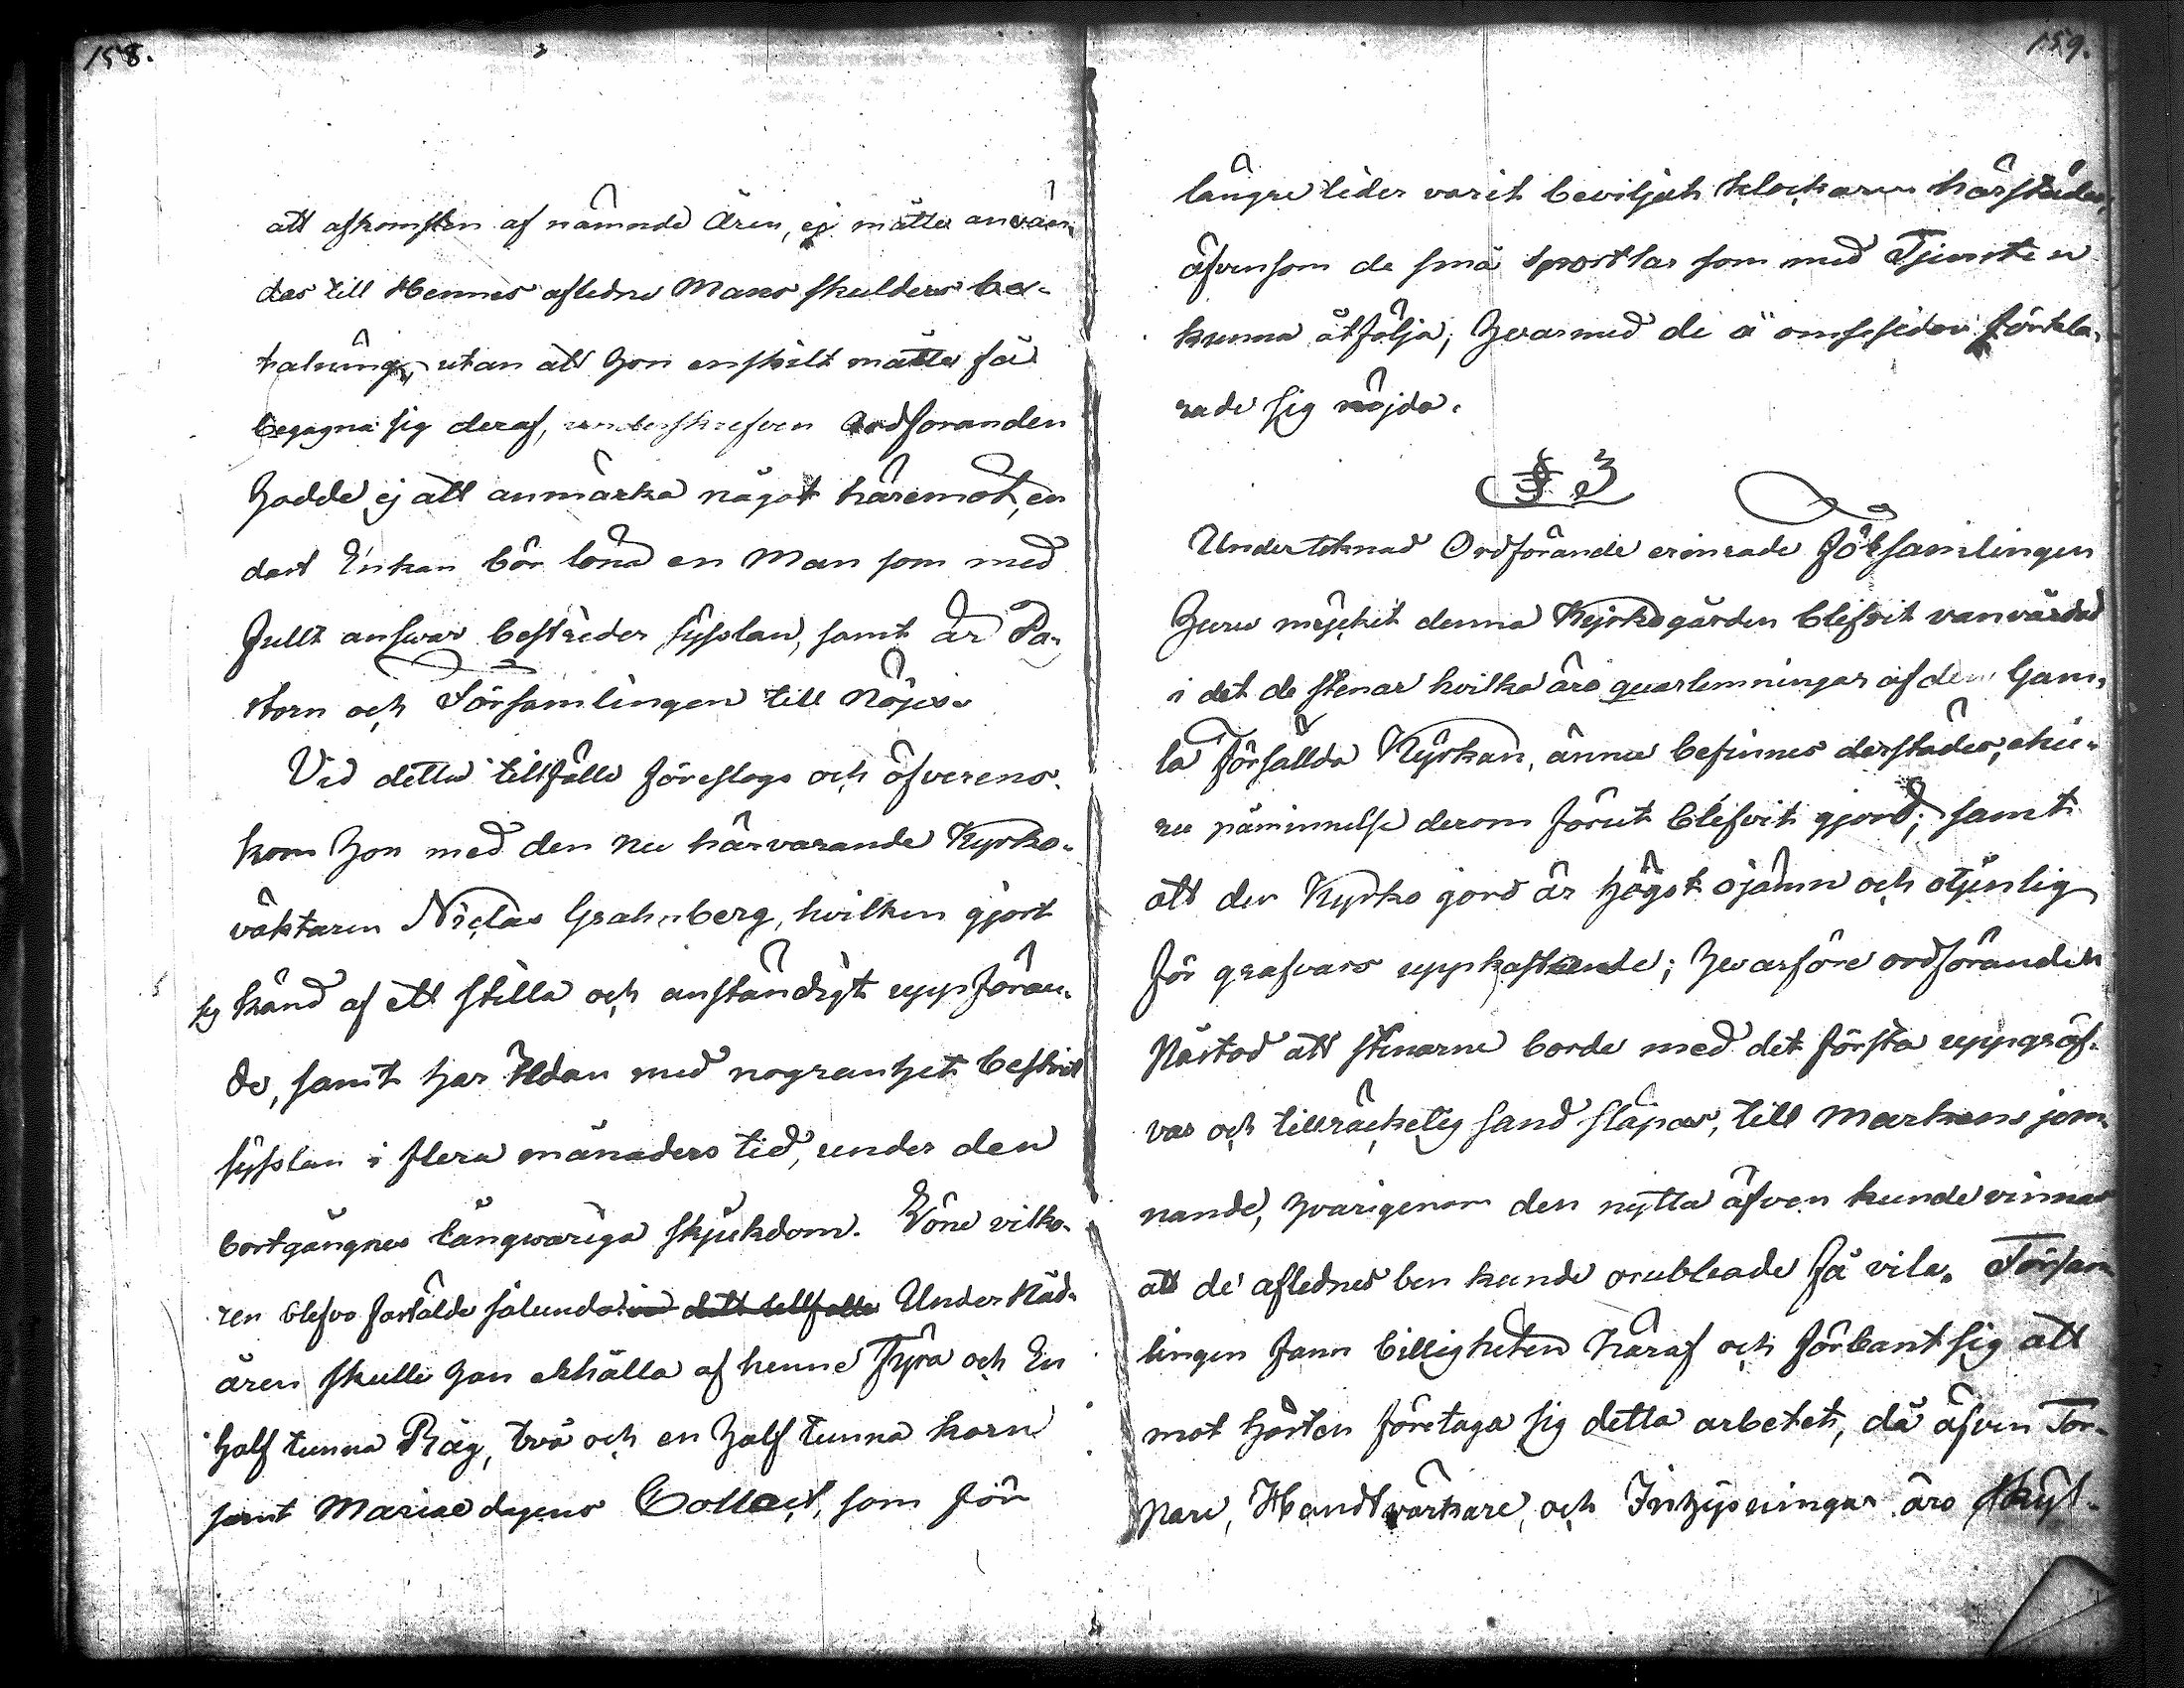 158.
att afkomsten af nämnde Åren, ej måtte använ-
das till Hennes aflidne Mans skulders be-
talning, utan att hon enskilt måtte få
begagna sig deraf, underskrefven Ordföranden
hadde ej att anmärka något häremot, en
dast Enkan bör löna en Man som med
fullt answar bestrider sysslan, samt är Pa-
storn och Församlingen till Nöjes.
Vid detta tillfälle föreslogs och öfverens-
kom hon med den nu härvarande Kyrko-
väktaren Niclas Grahnberg, hvilken gjort
sig känd af ett stilla och anständigt uppföran-
de, samt har redan med nogranhet bestridt
sysslan i flera månaders tid, under den
bortgångnes långwariga skjukdom. Löne vilko-
ren blefvo fastälde sålunda: Under Nåd-
åren skulle han erhålla af henne Fyra och En
half tunna Råg, två och en half tunna korn
samt Mariae dagens Collect, som för
159.
längre tider varit beviljat klockaren härstädes,
äfvensom de små sportlar som med Tjensten
kunna åtfölja; hvarmed de å ömsesidor förkla-
rade sig nöjda.
§ 3
Undertecknad Ordförande erinrade Församlingen
huru mycket denna Kyrkogården blifvit vanvårdad
i det de stenar hvilka äro qvarlemningar af den Gam-
la förfallda Kyrkan, ännu befinnes derstädes, ehu-
ru påminnelse derom förut blifvit gjord; samt
att den Kyrko jord är högst ojämn och otjenlig
för grafvars uppkastande; hvarföre ordföranden
Påstod att stenarne borde med det första uppgräf-
vas och tillräckelig sand släpas, till markens jem-
nande, hvarigenom den nytta äfven kunde vinnas
att de aflednes ben kunde orubbade få vila. Försam
lingen fann billigheten häraf och förbant sig att
mot hösten företaga sig detta arbetet, då äfven Tor-
pare, Handtvärkare, och Inhysningar äro skyl-